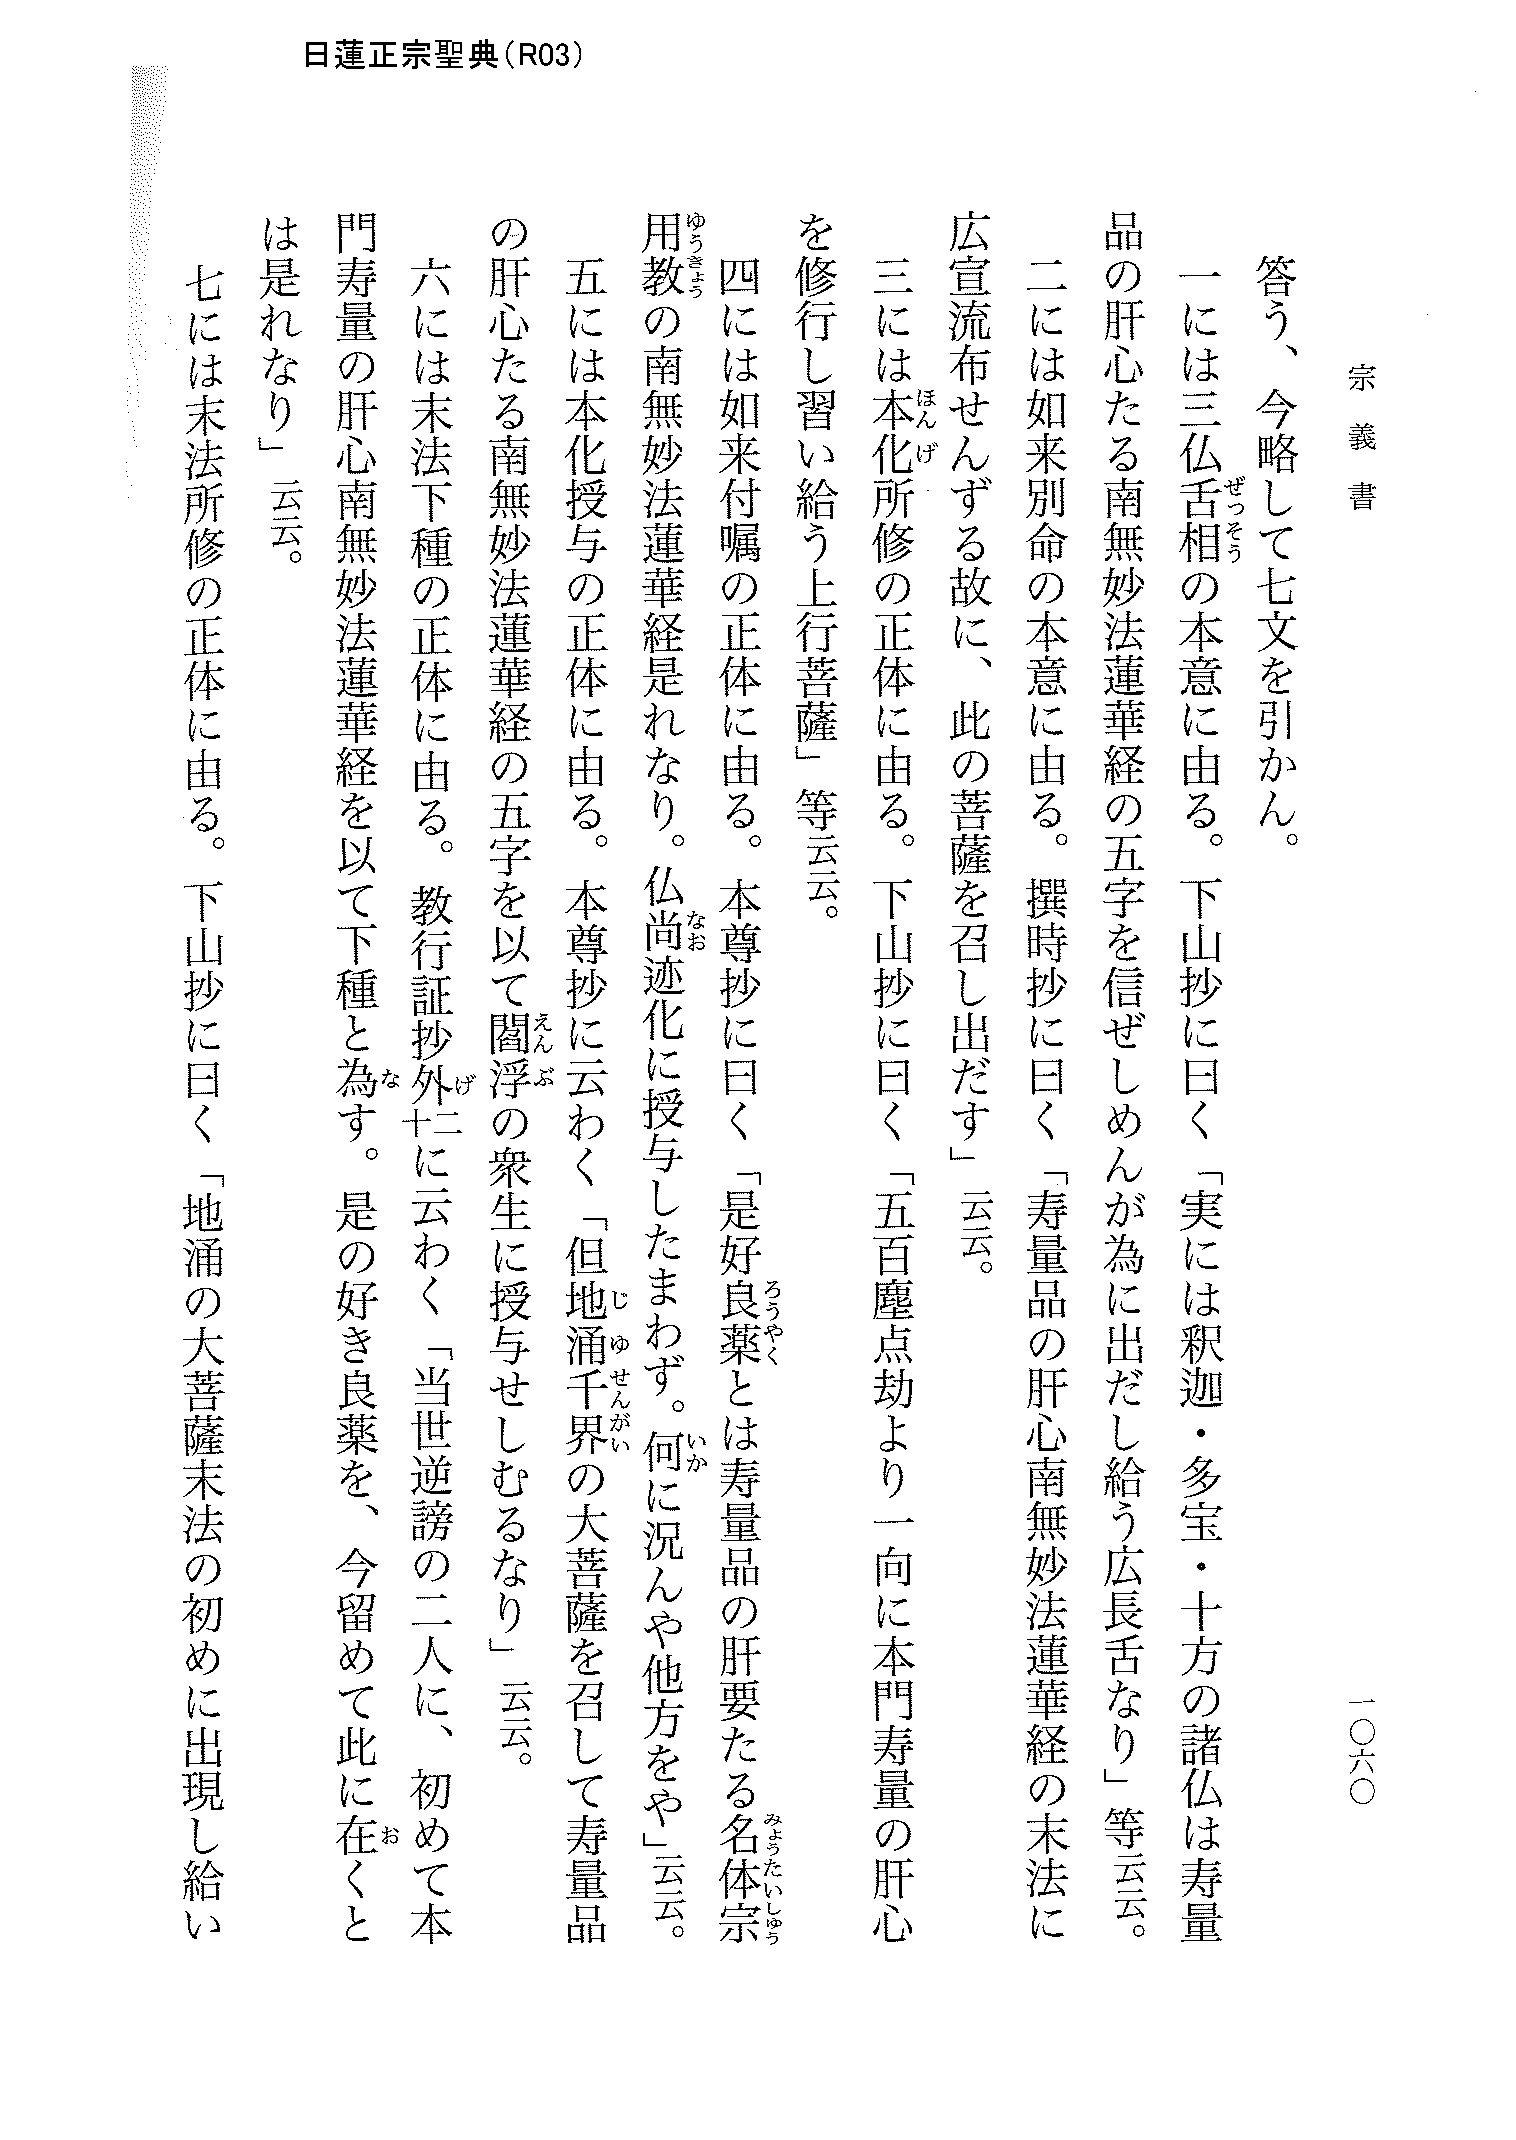 日蓮正宗聖典（R03）
宗義書
一〇六〇
答う、今略して七文を引かん。
一には三仏舌相の本意に由る。下山抄に曰く「実には釈迦・多宝・十方の諸仏は寿量
品の肝心たる南無妙法蓮華経の五字を信ぜしめんが為に出だし給う広長舌なり」等云云。
二には如来別命の本意に由る。撰時抄に曰く「寿量品の肝心南無妙法蓮華経の末法に
広宣流布せんずる故に、此の菩薩を召し出だす」云云。
三には本化所修の正体に由る。下山抄に曰く「五百塵点劫より一向に本門寿量の肝心
を修行し習い給う上行菩薩」等云云。
四には如来付嘱の正体に由る。本尊抄に曰く「是好良薬とは寿量品の肝要たる名体宗
用教の南無妙法蓮華経是れなり。仏尚迹化に授与したまわず。何に況んや他方をや」云云。
五には本化授与の正体に由る。本尊抄に云わく「但地涌千界の大菩薩を召して寿量品
の肝心たる南無妙法蓮華経の五字を以て閻浮の衆生に授与せしむるなり」云云。
六には末法下種の正体に由る。教行証抄外十二に云わく「当世逆謗の二人に、初めて本
門寿量の肝心南無妙法蓮華経を以て下種と為す。是の好き良薬を、今留めて此に在くと
は是れなり」云云。
七には末法所修の正体に由る。下山抄に曰く「地涌の大菩薩末法の初めに出現し給い